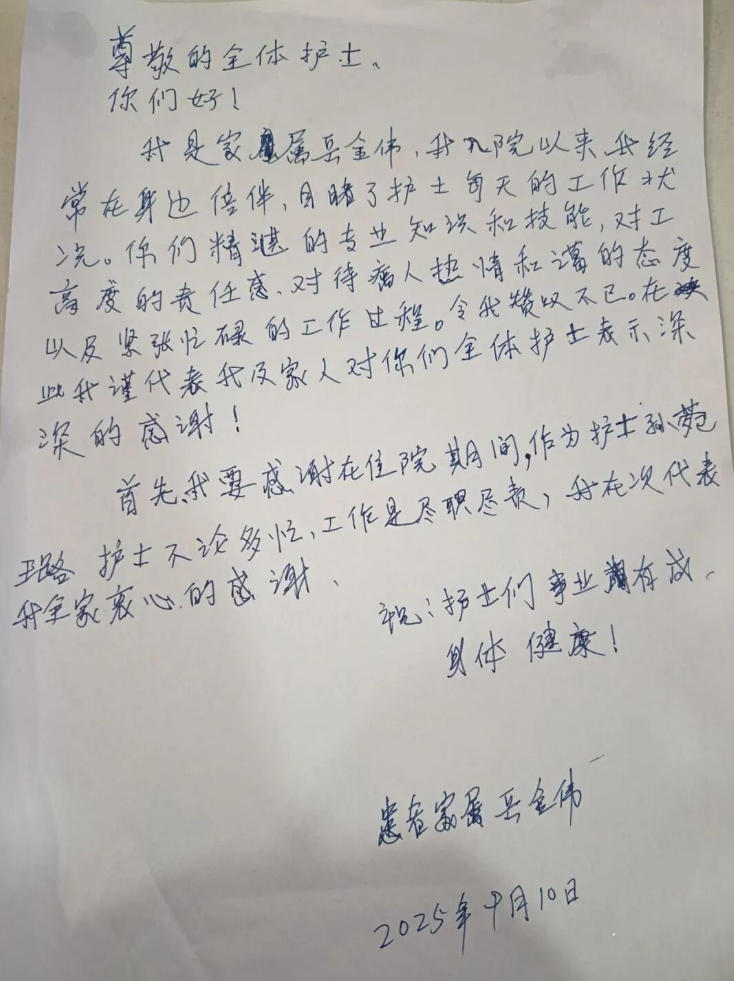 尊敬的全体护士、
你们好！
我是家属岳金伟，我入院以来我经
常在身边倍伴，目睹了护士每天的工作状
况。你们精湛的专业知识和技能，对工
高度的责任感、对待病人热情和蔼的态度
以及紧张忙碌的工作过程。令我赞叹不已。在
此我谨代表我及家人对你们全体护士表示深
深的感谢！
首先，我要感谢在住院期间，作为护士孙苑
王璐 护士不论多忙、工作是尽职尽责，我在次代表
我全家衷心的感谢、
祝：护士们事业有成、
身体健康！
患者家属岳金伟
2025年9月10日